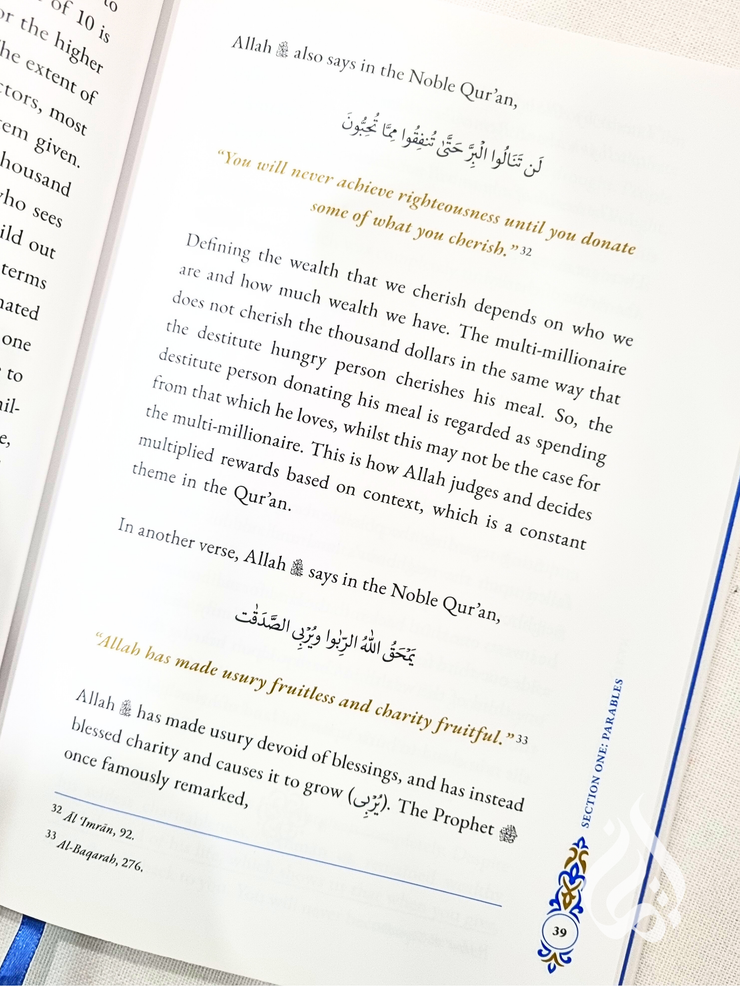 to
of 10 is
or the higher
he extent of
ctors, most
em given.
housand
ho sees
ild out
terms
nated
one
to
il-
e,
Allah ﷻ also says in the Noble Qur'an,
لَن تَنَالُوا الْبِرَّ حَتَّىٰ تُنفِقُوا مِمَّا تُحِبُّونَ
“You will never achieve righteousness until you donate
some of what you cherish.”32
Defining the wealth that we cherish depends on who we
are and how much wealth we have. The multi-millionaire
does not cherish the thousand dollars in the same way that
the destitute hungry person cherishes his meal. So, the
destitute person donating his meal is regarded as spending
from that which he loves, whilst this may not be the case for
the multi-millionaire. This is how Allah judges and decides
multiplied rewards based on context, which is a constant
theme in the Qur'an.
In another verse, Allah ﷻ says in the Noble Qur'an,
يَمْحَقُ اللَّهُ الرِّبَوٰا وَيُرْبِى الصَّدَقَٰت
“Allah has made usury fruitless and charity fruitful.”33
Allah ﷻ has made usury devoid of blessings, and has instead
blessed charity and causes it to grow (يُرْبِى). The Prophet ﷺ
once famously remarked,
32 Āl ‘Imrān, 92.
33 Al-Baqarah, 276.
SECTION ONE: PARABLES
39